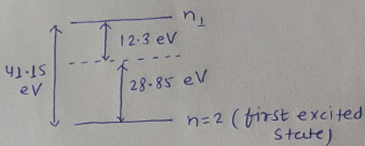 n₁
12.3 eV
41.15
eV
28.85 eV
n=2 (first excited
state)